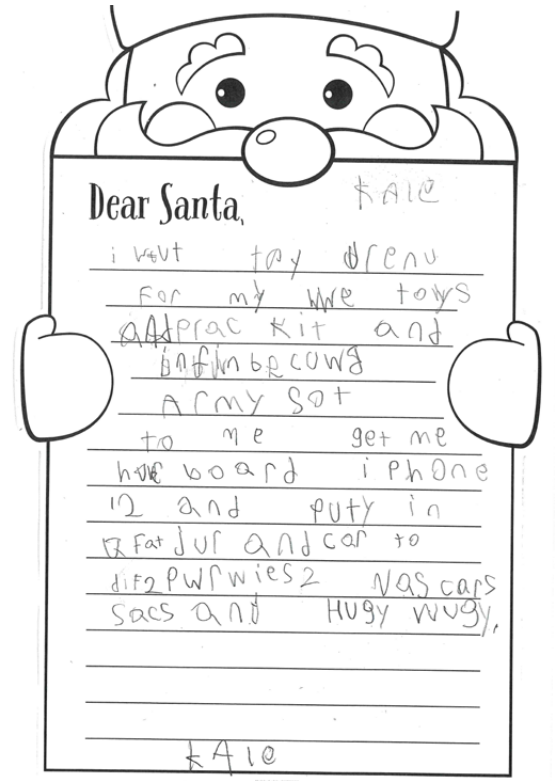 Dear Santa, KAIe
i wout toy drenu
For my wwe towys
and prac Kit and
infinbecowd
Army Sot
to me get me
hovr board i Phone
12 and puty in
a Fat Jur and car to
dif2 Pwrwies2 Nascars
Sacs and Hugy Wugy,
KAIe